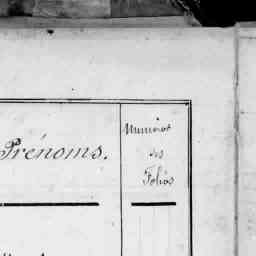 Prénoms.
Numéros
des
Folios